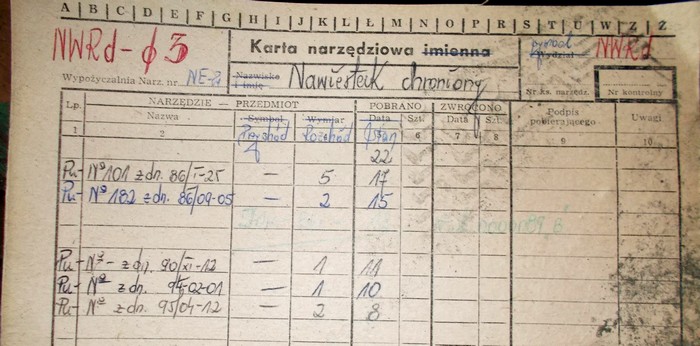 A B C D E F G H I J K L Ł M N O P R S T U W Z Ż
NWRd-ϕ3
Karta narzędziowa imienna
symbol
Wydział
NWRd
Wypożyczalnia Narz. nr NE-
Nazwisko
i imię
Nawiertak chroniony
Nr ks. narzędz.
Nr kontrolny
Lp.
NARZĘDZIE — PRZEDMIOT
POBRANO
ZWRÓCONO
Podpis
pobierającego
Uwagi
Nazwa
Symbol
Wymiar
Data
Szt.
Data
Szt.
Przychód
Rozchód
Stan
1 2 6 7 8 9 10
22
Pu- Nº 101 z dn. 86/I-25 — 5 17
Pu- Nº 182 z dn. 86/09-05 — 2 15
Pu- Nº - z dn. 90/XI-12 — 1 11
Pu- Nº z dn. 94-02-01 — 1 10
Pu- Nº z dn. 95/04-12 — 2 8